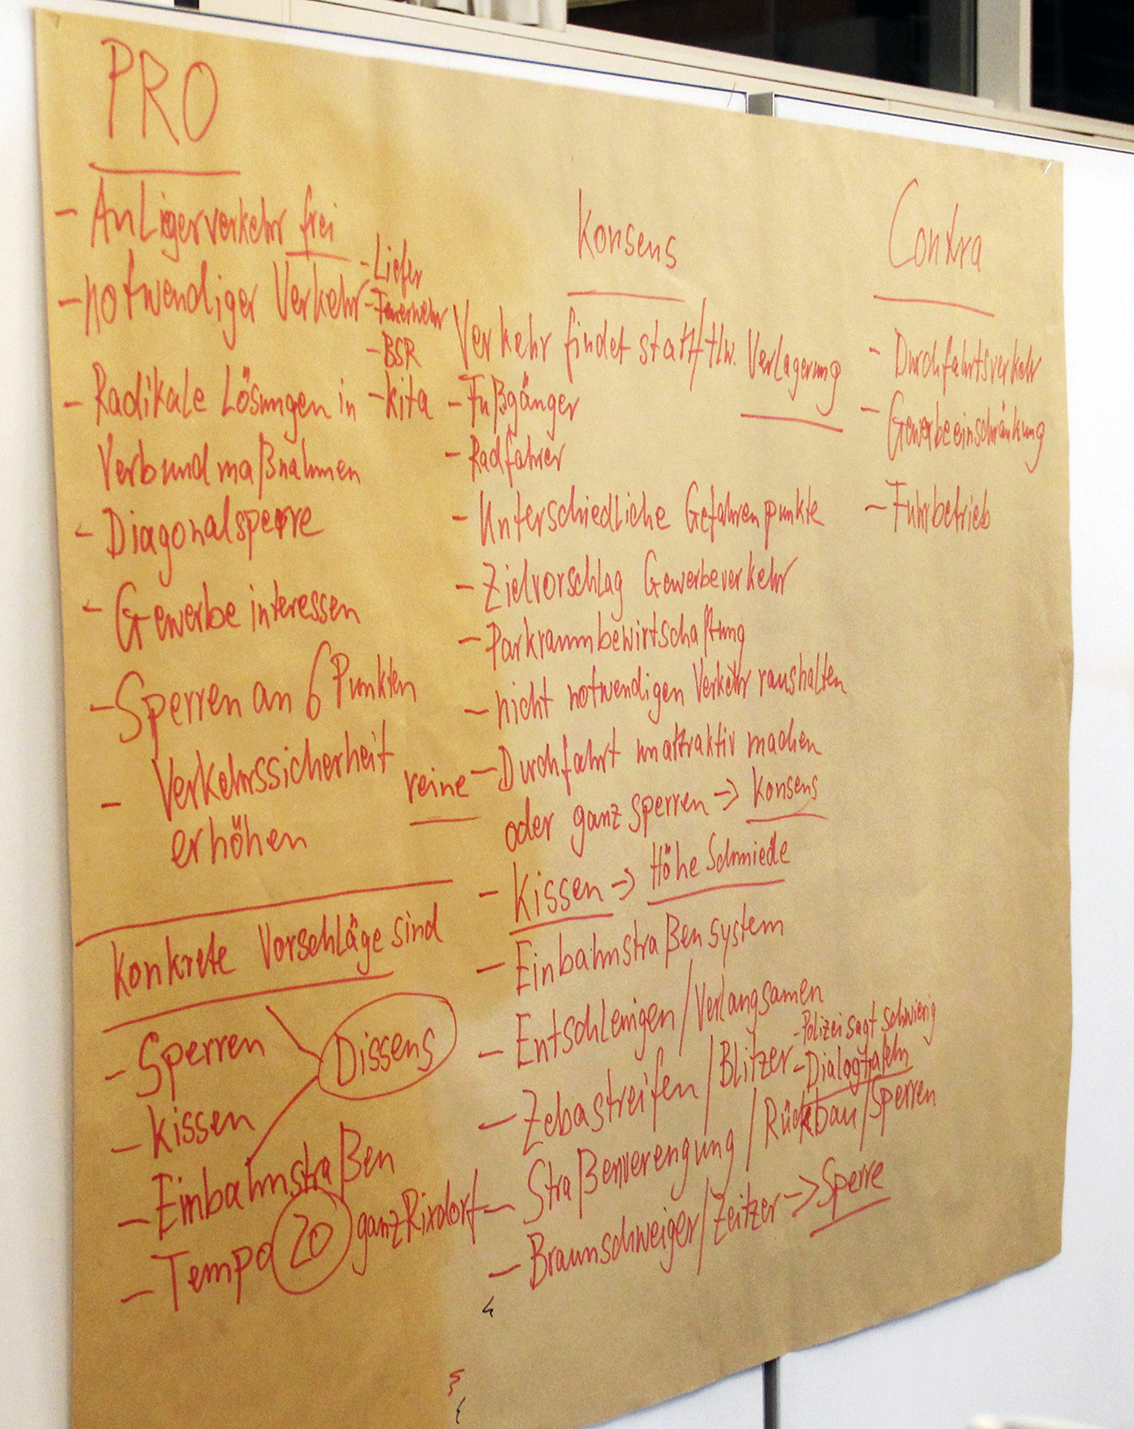 PRO
- Anligerverkehr frei
- notwendiger Verkehr
- Liefer
- Feuerwehr
- BSR
- kita
- Radikale Lösungen in
Verbundmaßnahmen
- Diagonalsperre
- Gewerbeinteressen
- Sperren an 6 Punkten
- Verkehrssicherheit
erhöhen
Konkrete Vorschläge sind
Dissens
- Sperren
- Kissen
- Einbahnstraßen
- Tempo 20 ganz Rixdorf
Konsens
Verkehr findet statt/tlw. Verlagerung
- Fußgänger
- Radfahrer
- Unterschiedliche Gefahrenpunkte
- Zielvorschlag Gewerbeverkehr
- Parkraumbewirtschaftung
- nicht notwendigen Verkehr raushalten
reine - Durchfahrt unattraktiv machen
oder ganz sperren -> Konsens
- Kissen -> Höhe Schmiede
- Einbahnstraßensystem
- Entschleunigen/Verlangsamen
- Zebastreifen/Blitzer - Polizei sagt schwierig
- Dialogtafeln
- Straßenverengung/Rückbau/Sperren
- Braunschweiger/Zeitzer -> Sperre
Contra
- Durchfahrtsverkehr
- Gewerbeeinschränkung
- Fuhrbetrieb